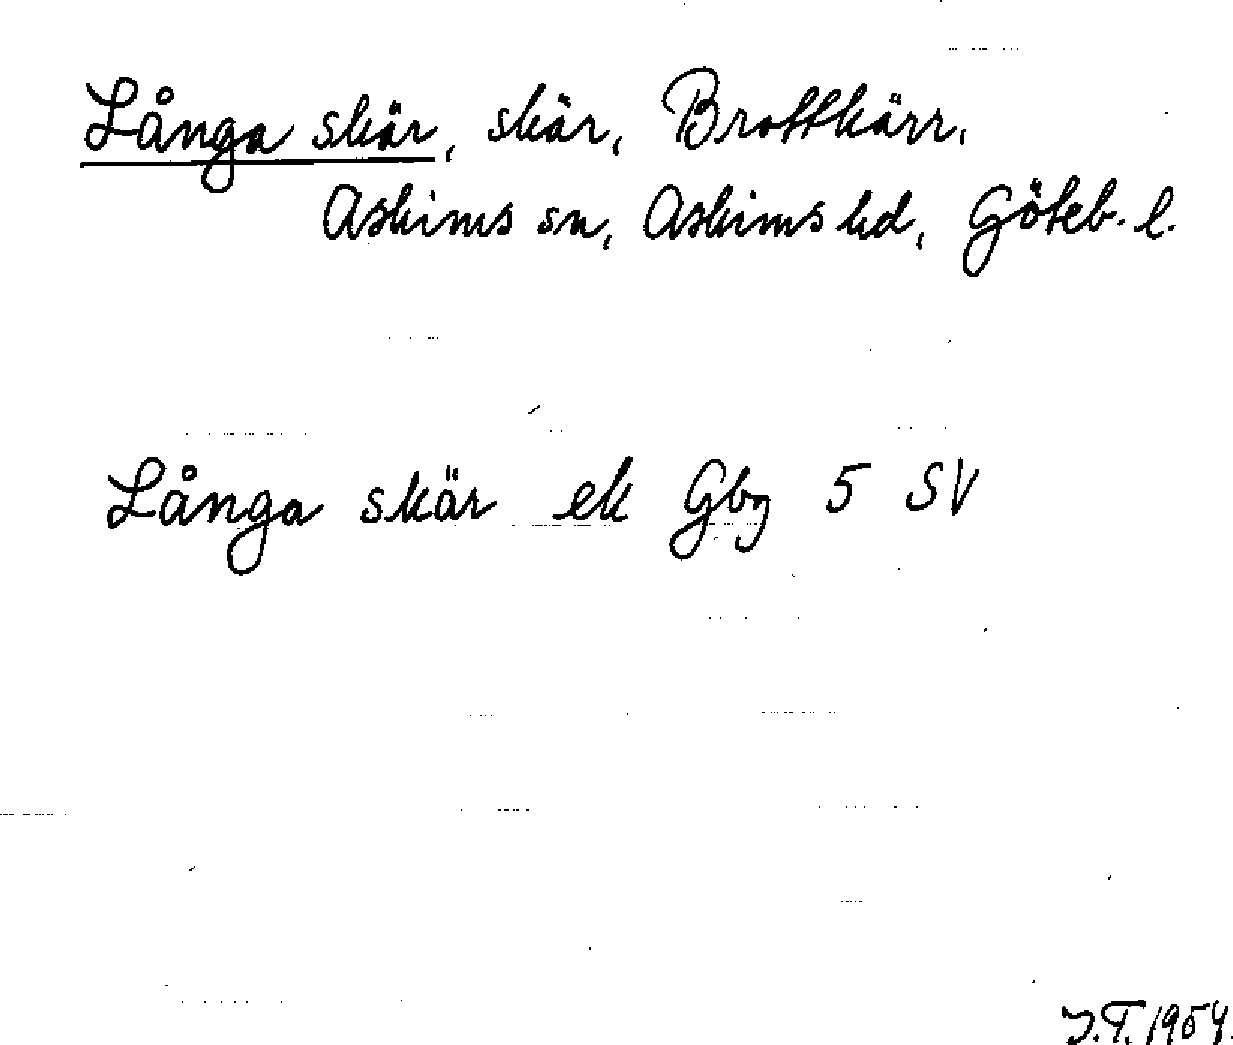 Långa skär, skär, Brottkärr,
Askims sn, Askims hd, Göteb. l.
Långa skär ek Gbg 5 SV
J.T. 1954.